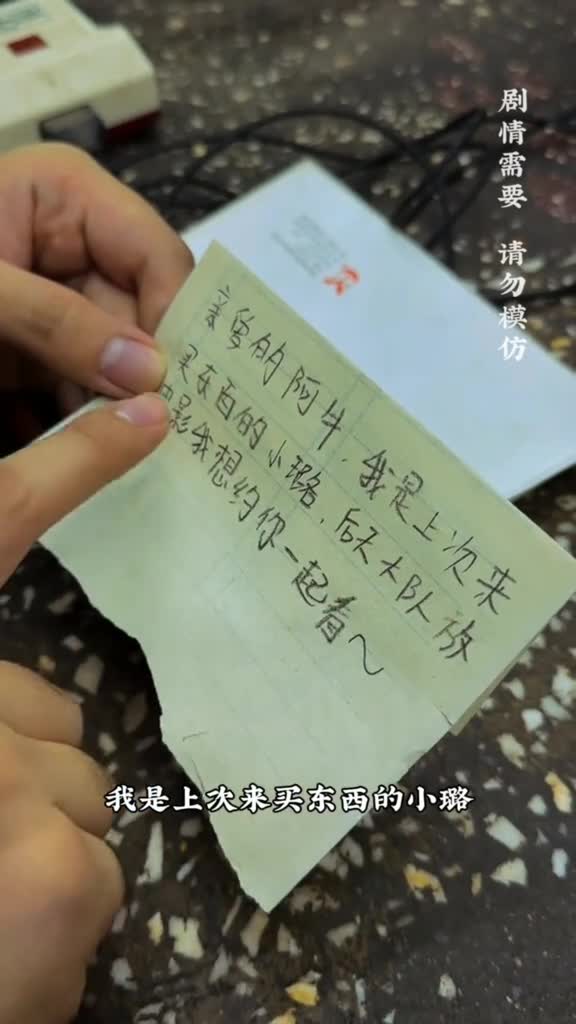 剧情需要 请勿模仿
亲爱的阿牛，我是上次来
买东西的小璐，后天大队放
电影我想约你一起看～
我是上次来买东西的小璐